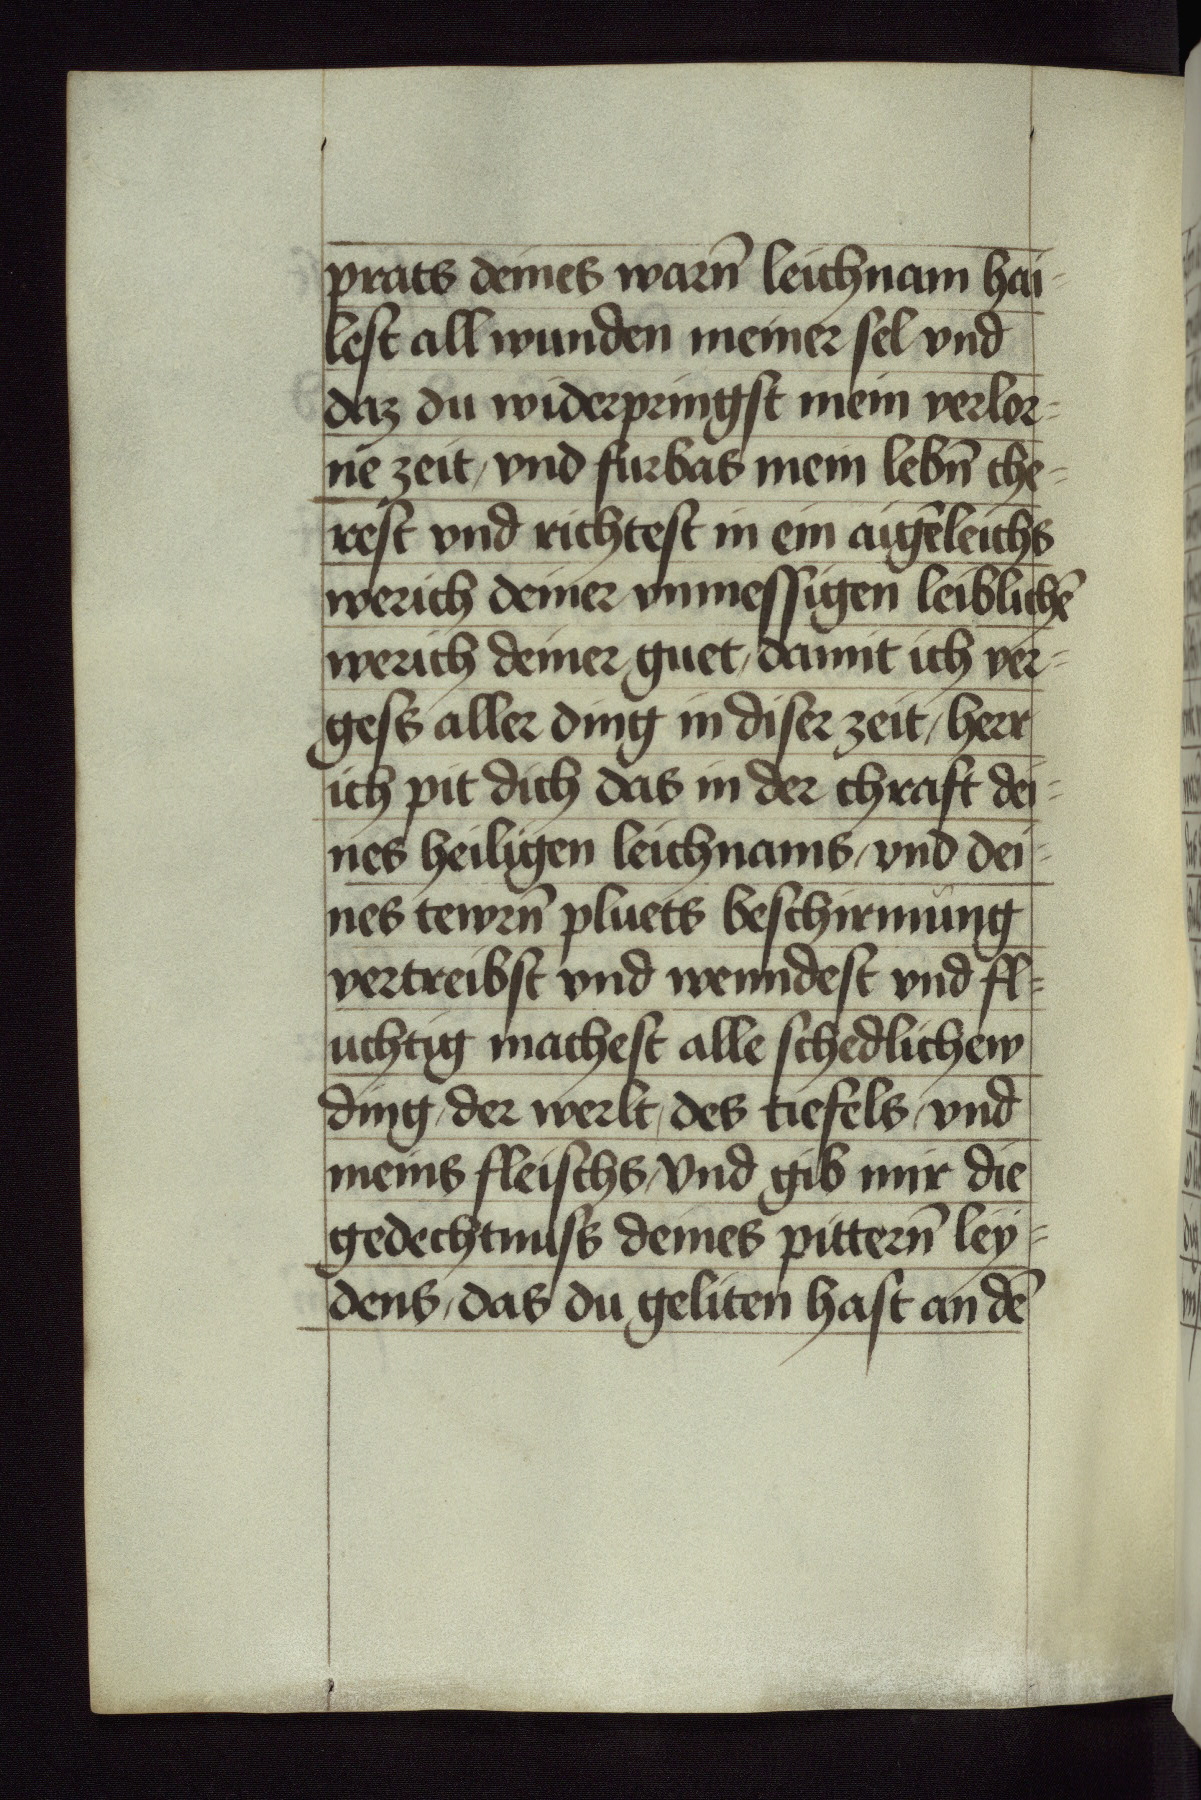 prats deines warn̄ leichnam hai-
lest all wunden meiner sel vnd
daz du widerpringst mein verlor-
ne zeit / vnd furbas mein lebn̄ che-
rest vnd richtest in ein aigēleichs
werich deiner vnmessigen leiblichē
werich deiner guet / damit ich ver-
gess aller ding in diser zeit / herr
ich pit dich das in der chraft dei-
nes heiligen leichnams / vnd dei-
nes tewrn̄ pluets beschirmung
vertreibst vnd wenndest vnd fl-
uchtig machest alle schedlichew
ding / der werlt / des tiefels / vnd
meins fleischs / Vnd gib mir die
gedechtnuss deines pittern̄ ley-
dens / das du geliten hast an dē